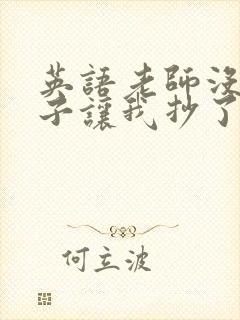 英語老師沒
子讓我抄了
何立波